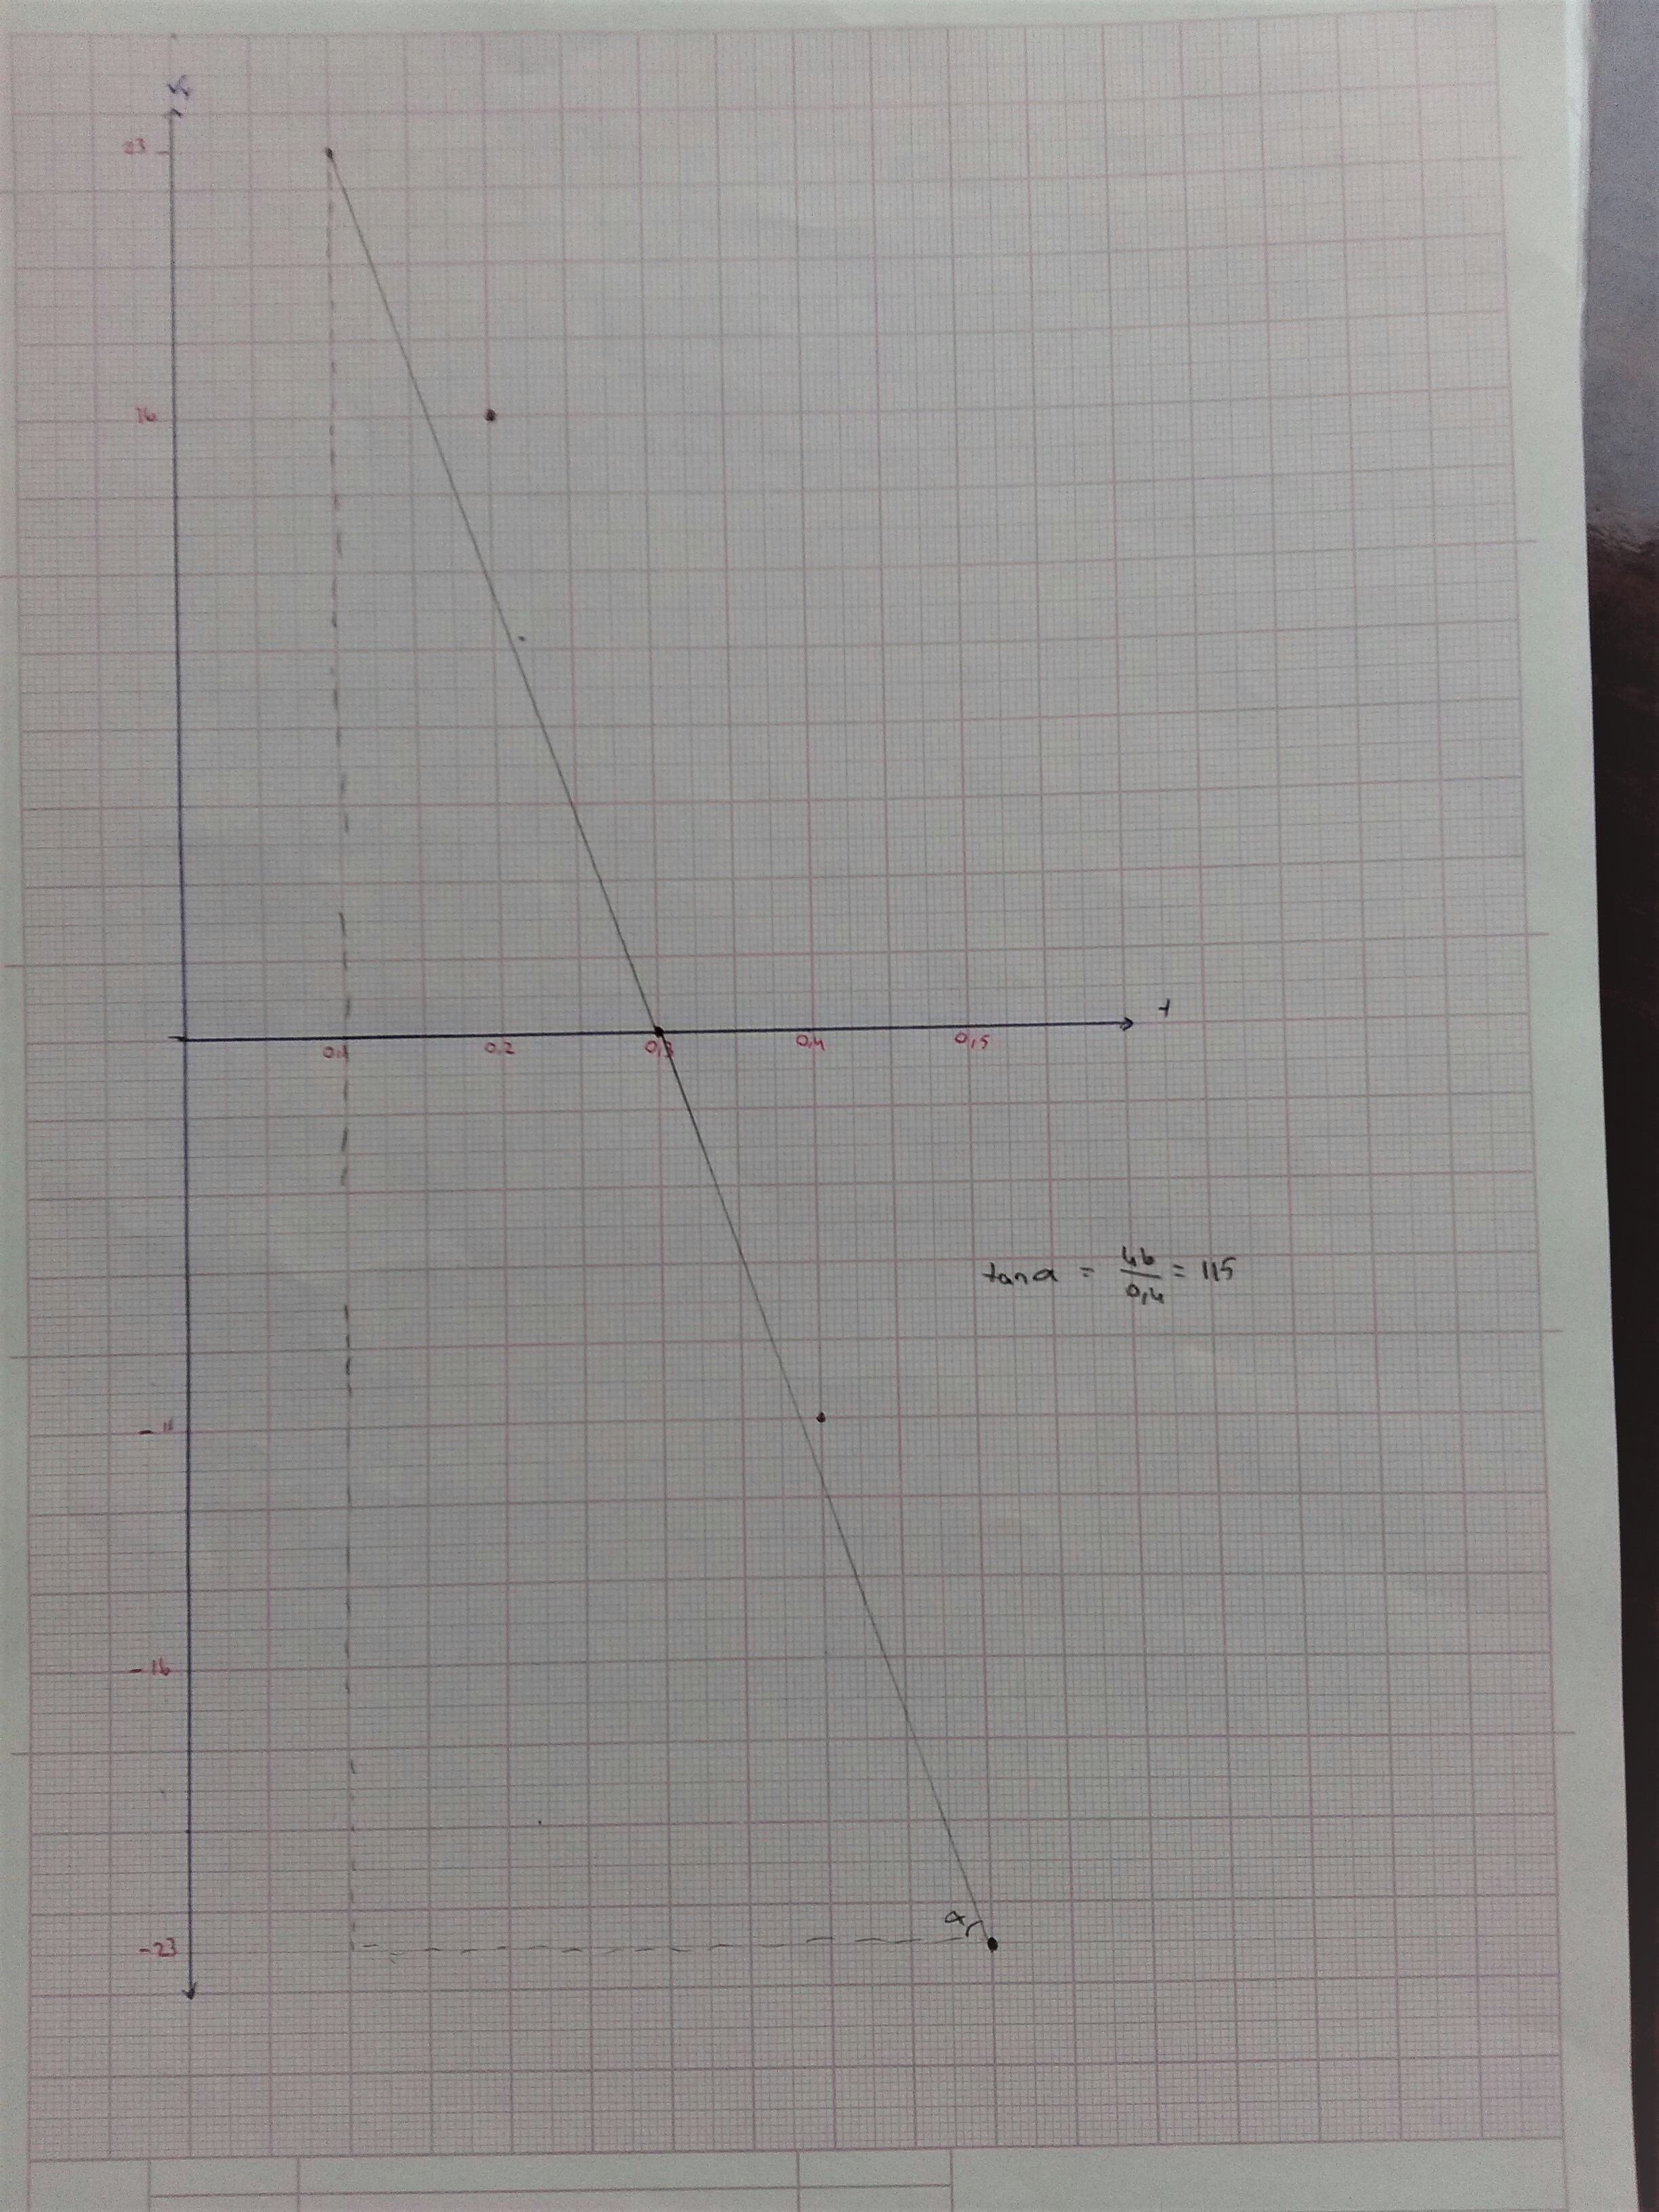 23
16
t
0,1 0,2 0,3 0,4 0,5
tanα = 46/0,4 = 115
-16
α
-23